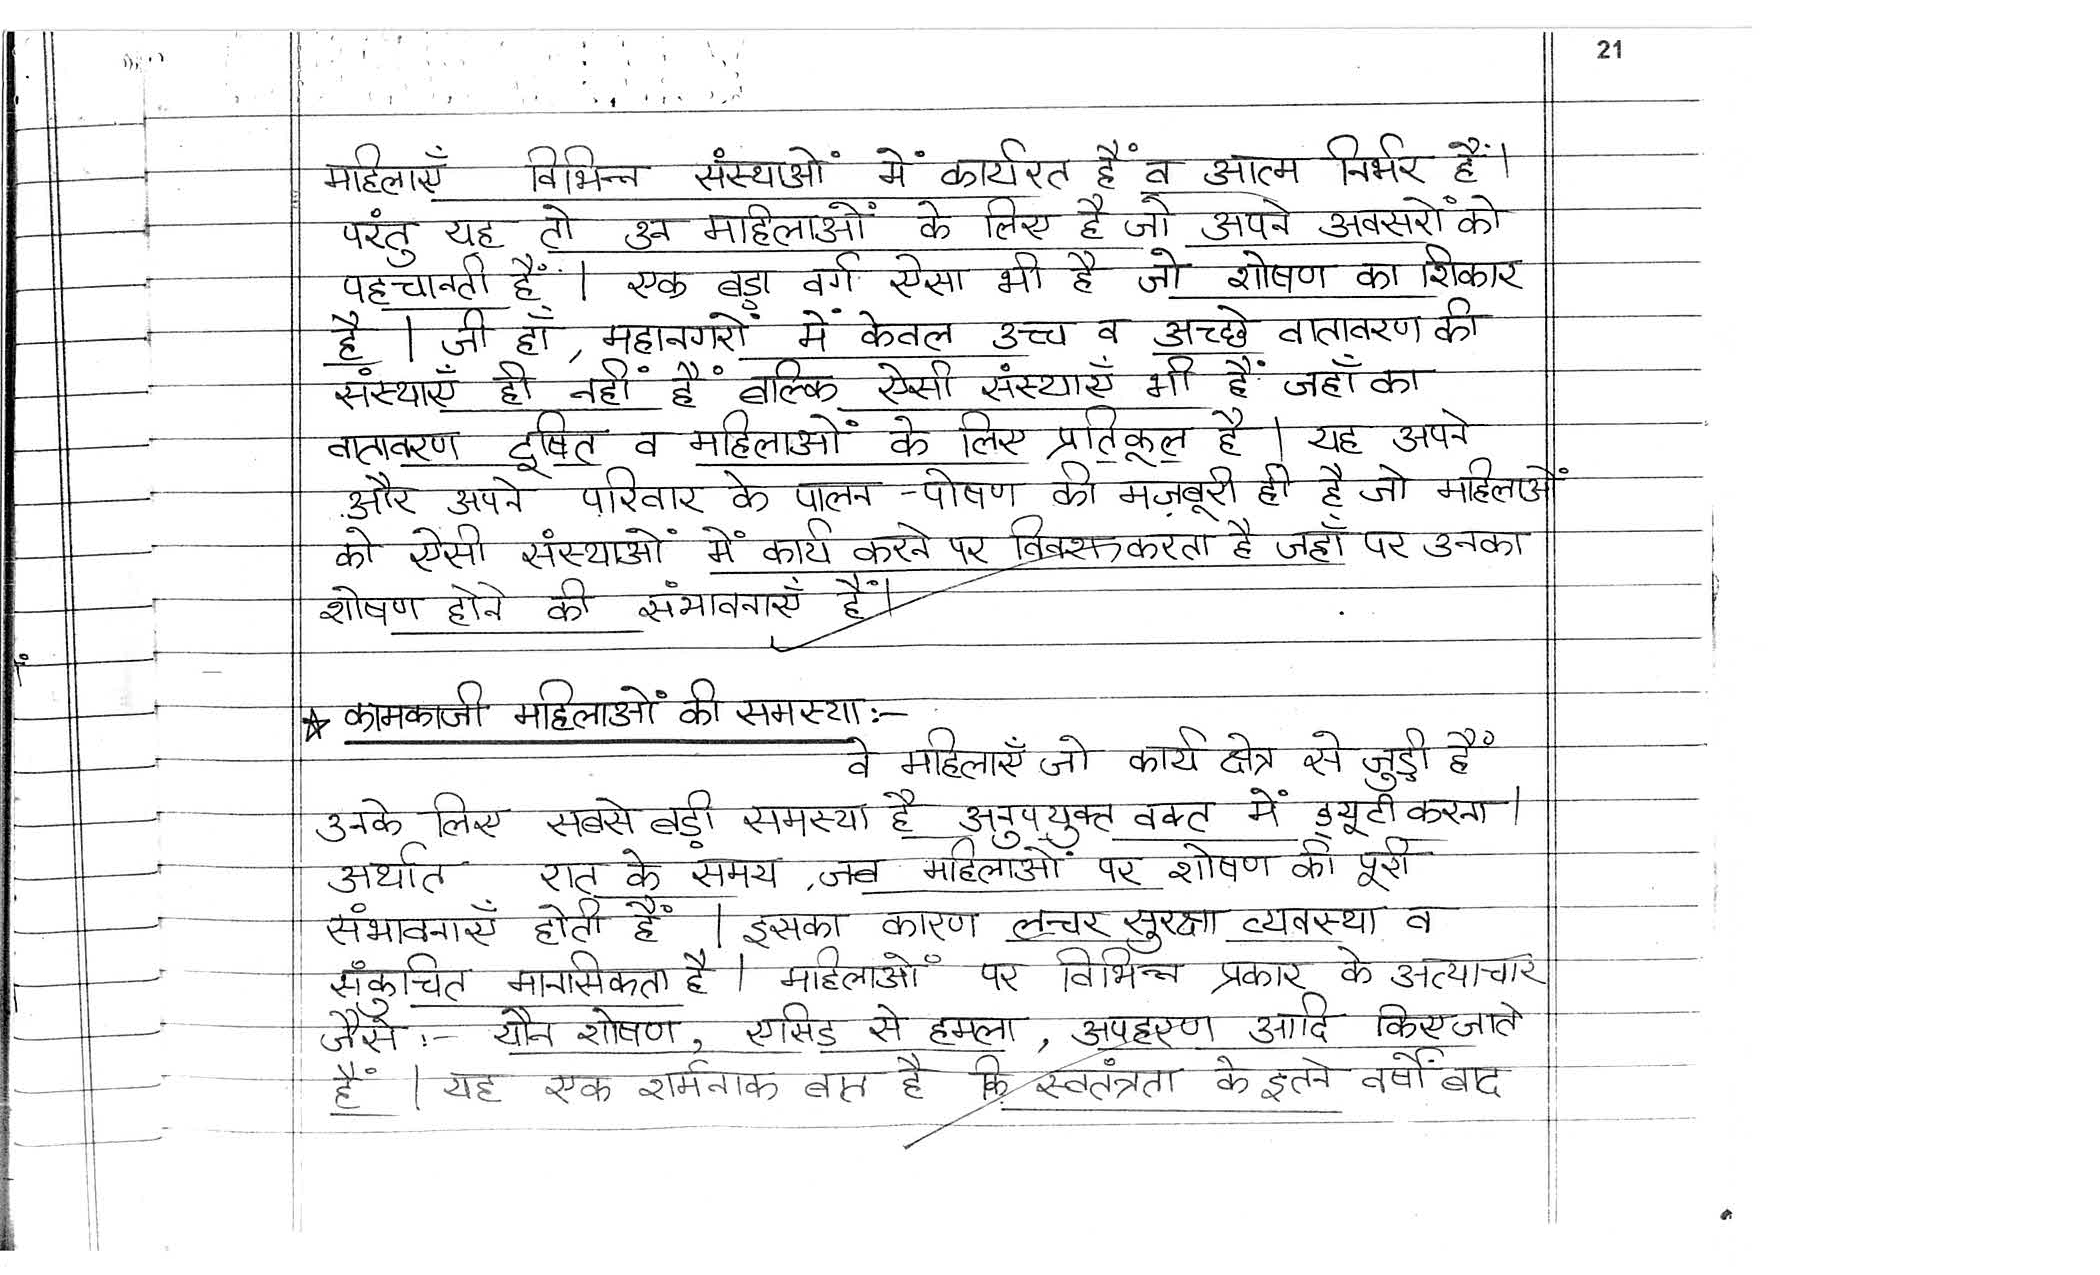 21
महिलाएँ विभिन्न संस्थाओं में कार्यरत हैं व आत्म निर्भर हैं।
परंतु यह तो उन महिलाओं के लिए है जो अपने अवसरों को
पहचानती हैं। एक बड़ा वर्ग ऐसा भी है जो शोषण का शिकार
है। जी हाँ, महानगरों में केवल उच्च व अच्छे वातावरण की
संस्थाएँ ही नहीं हैं बल्कि ऐसी संस्थाएँ भी हैं जहाँ का
वातावरण दूषित व महिलाओं के लिए प्रतिकूल है। यह अपने
और अपने परिवार के पालन-पोषण की मज़बूरी ही है जो महिलाओं
को ऐसी संस्थाओं में कार्य करने पर विवश करता है जहाँ पर उनका
शोषण होने की संभावनाएँ हैं।
☆ कामकाजी महिलाओं की समस्या:-
वे महिलाएँ जो कार्य क्षेत्र से जुड़ी हैं
उनके लिए सबसे बड़ी समस्या है अनुपयुक्त वक्त में ड्यूटी करना।
अर्थात रात के समय, जब महिलाओं पर शोषण की पूरी
संभावनाएँ होती हैं। इसका कारण लच्चर सुरक्षा व्यवस्था व
संकुचित मानसिकता है। महिलाओं पर विभिन्न प्रकार के अत्याचार
जैसे:- यौन शोषण, एसिड से हमला, अपहरण आदि किए जाते
हैं। यह एक शर्मनाक बात है कि स्वतंत्रता के इतने वर्षों बाद